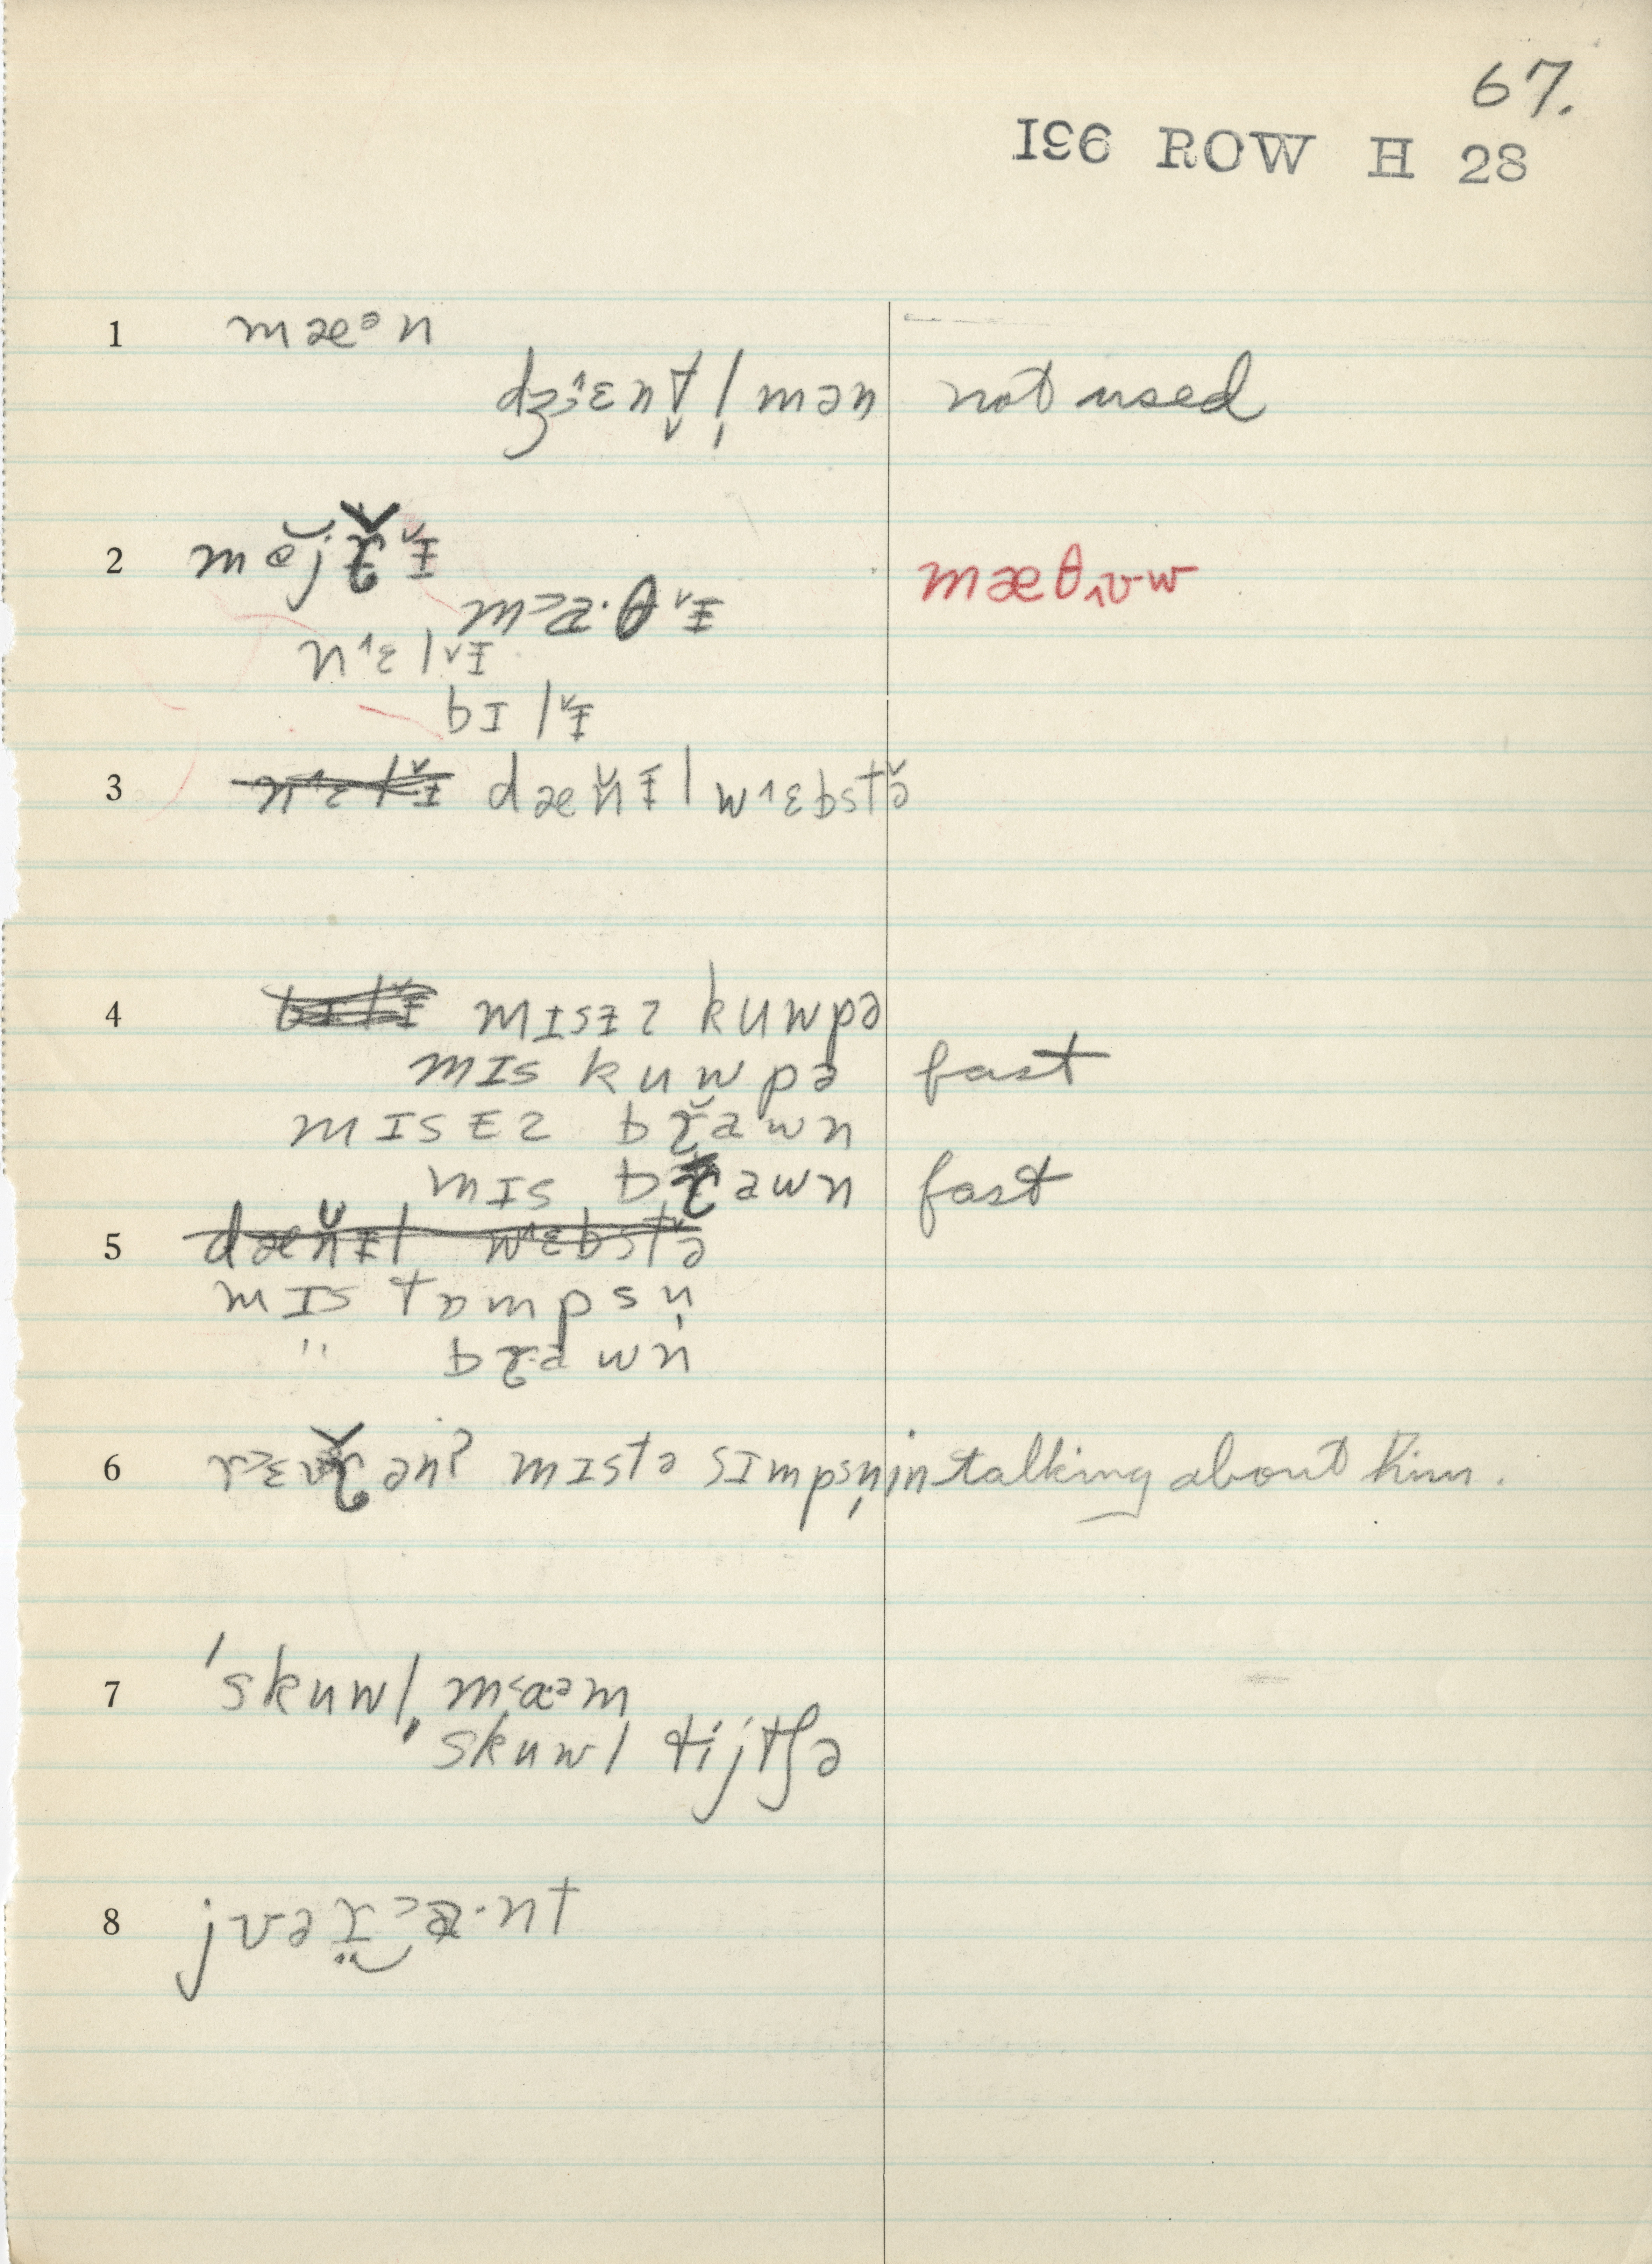 67.
196 ROW H 28
1 mæᵊn
dʒɛnt̬l̩mən not used
2 mɐ̆jɾ̌ɨ̌
mæ·θɨ̌ mæθɪvw
nɛlɨ̌
bɪlɨ̌
3 nɛlɨ̌ dænɨ̆l wɛbstə̌
4 bɪlɨ̌ mɪsɨz kuwpə
mɪs kuwpə fast
mɪsɨz bɾ̆awn
mɪs bɾawn fast
5 dænɨ̆l wɛbstə̌
mɪs tɒmpsn̩
" bɾawn
6 rɛvɾ̌ən? mɪstə sɪmpsn̩ in talking about him.
7 'skuwl, mɑᵊm
"skuwl tijtʃə
8 jʊəɾ̤ a·nt